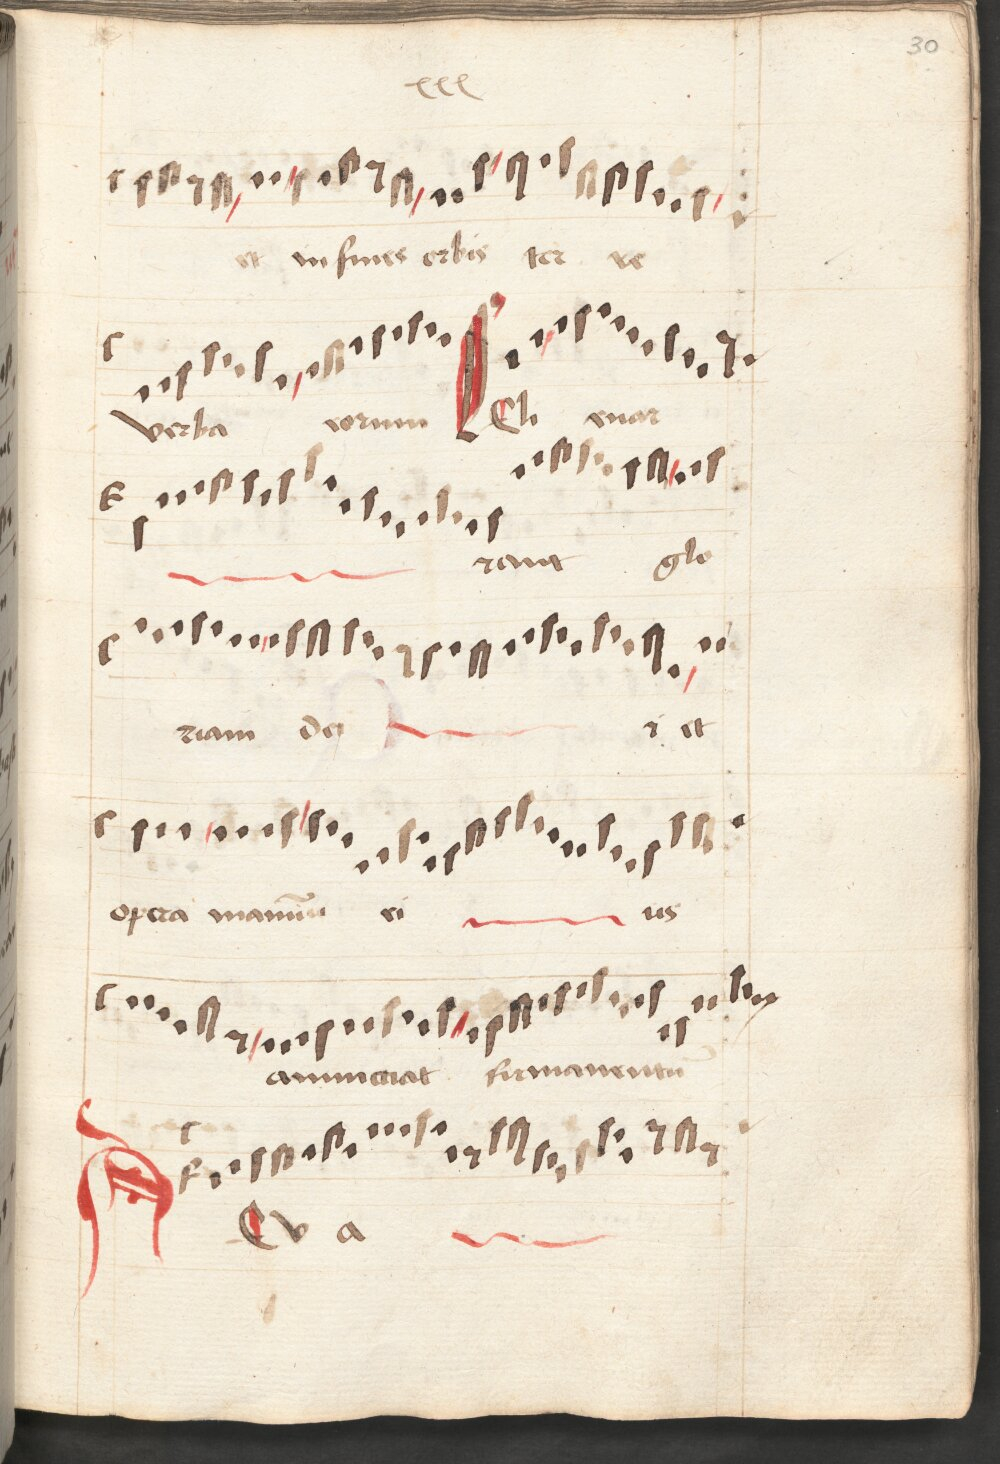 30
xxx
et in fines orbis ter re
verba eorum Celi enar
rant glo
riam dei i et
opera manuū ei us
annunciat firmamentū
E v a